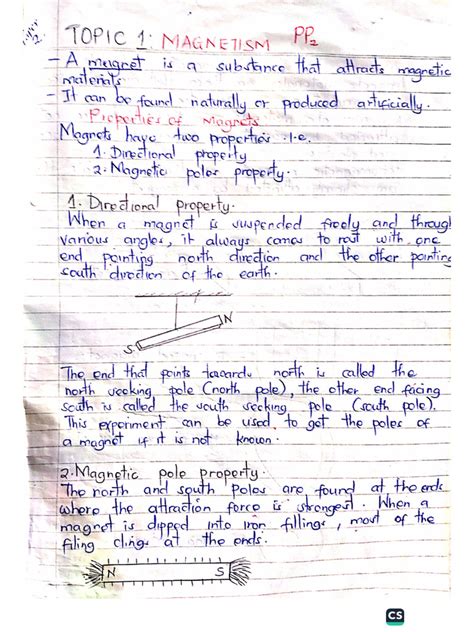 TOPIC 1: MAGNETISM PP2
- A magnet is a substance that attracts magnetic
materials
- It can be found naturally or produced artificially.
Properties of Magnets
Magnets have two properties i.e.
1. Directional property
2. Magnetic poles property.
1. Directional property.
When a magnet is suspended freely and through
various angles, it always comes to rest with one
end pointing north direction and the other pointing
south direction of the earth.
N
S
The end that points towards north is called the
north seeking pole (north pole), the other end facing
south is called the south seeking pole (south pole).
This experiment can be used to get the poles of
a magnet if it is not known.
2. Magnetic pole property.
The north and south Poles are found at the ends
where the attraction force is strongest. When a
magnet is dipped into iron fillings, most of the
filing clings at the ends.
N S
CS